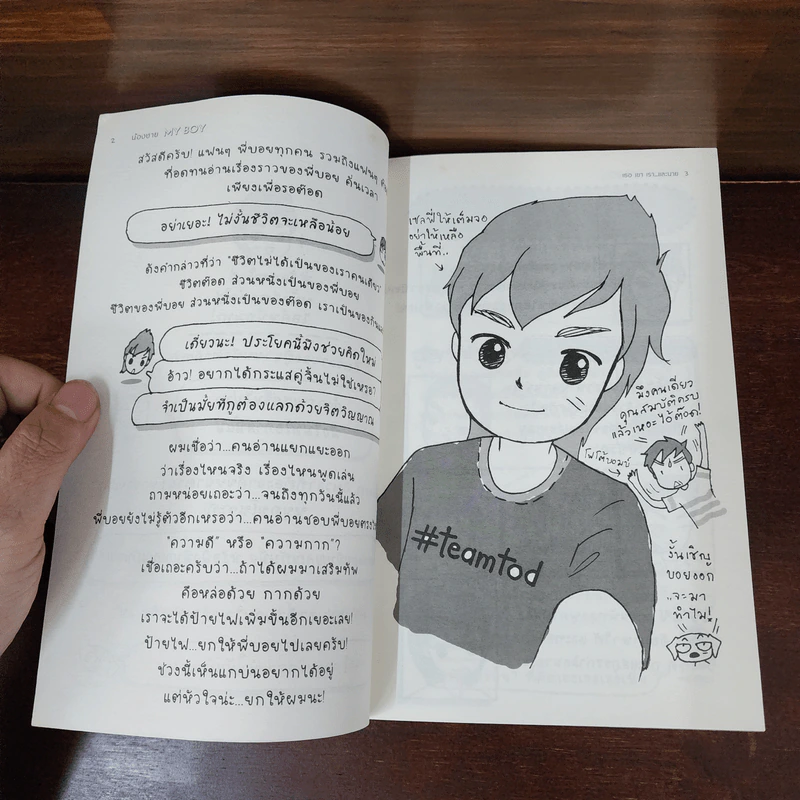 2 น้องชาย MY BOY
สวัสดีครับ! แฟนๆ พี่บอยทุกคน รวมถึงแฟนๆ
ที่อดทนอ่านเรื่องราวของพี่บอย คั่นเวลา
เพียงเพื่อรอต๊อด
อย่าเยอะ! ไม่งั้นชีวิตจะเหลือน้อย
ดังคำกล่าวที่ว่า "ชีวิตไม่ได้เป็นของเราคนเดียว"
ชีวิตต๊อด ส่วนหนึ่งเป็นของพี่บอย
ชีวิตของพี่บอย ส่วนหนึ่งเป็นของต๊อด เราเป็นของกัน
เดี๋ยวนะ! ประโยคนี้มึงช่วยคิดใหม่
อ้าว! อยากได้กระแสคู่จิ้นไม่ใช่เหรอ
จำเป็นมั้ยที่กูต้องแลกด้วยจิตวิญญาณ
ผมเชื่อว่า...คนอ่านแยกแยะออก
ว่าเรื่องไหนจริง เรื่องไหนพูดเล่น
ถามหน่อยเถอะว่า...จนถึงทุกวันนี้แล้ว
พี่บอยยังไม่รู้ตัวอีกเหรอว่า...คนอ่านชอบพี่บอยตรง
"ความดี" หรือ "ความกาก"?
เชื่อเถอะครับว่า...ถ้าได้ผมมาเสริมทัพ
คือหล่อด้วย กากด้วย
เราจะได้ป้ายไฟเพิ่มขึ้นอีกเยอะเลย!
ป้ายไฟ...ยกให้พี่บอยไปเลยครับ!
ช่วงนี้เห็นแกบ่นอยากได้อยู่
แต่หัวใจน่ะ...ยกให้ผมนะ!
3
เซลฟี่ให้เต็มจอ
อย่าให้เหลือ
พื้นที่..
มึงคนเดียว
คูณสมบัติครบ
แล้วเหอะไอ้ต๊อด!
โฟโต้บอมบ์
#teamtod
งั้นเชิญ
บอยออก
..จะมา
ทำไม!